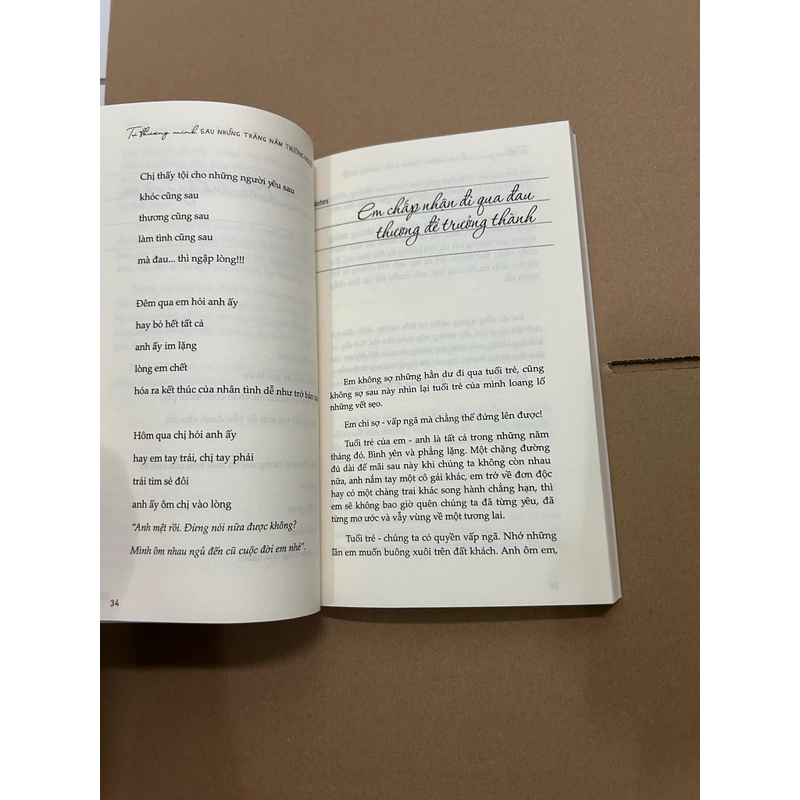 Tự thương mình SAU NHỮNG THÁNG NĂM THƯƠNG
Chị thấy tội cho những người yêu sau
khóc cũng sau
thương cũng sau
làm tình cũng sau
mà đau... thì ngập lòng!!!
Đêm qua em hỏi anh ấy
hay bỏ hết tất cả
anh ấy im lặng
lòng em chết
hóa ra kết thúc của nhân tình dễ như trở bàn
Hôm qua chị hỏi anh ấy
hay em tay trái, chị tay phải
trái tim sẻ đôi
anh ấy ôm chị vào lòng
"Anh mệt rồi. Đừng nói nữa được không?
Mình ôm nhau ngủ đến cũ cuộc đời em nhé".
34
Notes
Em chấp nhận đi qua đau
thương để trưởng thành
Em không sợ những hằn dư đi qua tuổi trẻ, cũng
không sợ sau này nhìn lại tuổi trẻ của mình loang lổ
những vết sẹo.
Em chỉ sợ - vấp ngã mà chẳng thể đứng lên được!
Tuổi trẻ của em - anh là tất cả trong những năm
tháng đó. Bình yên và phẳng lặng. Một chặng đường
đủ dài để mãi sau này khi chúng ta không còn nhau
nữa, anh nắm tay một cô gái khác, em trở về đơn độc
hay có một chàng trai khác song hành chẳng hạn, thì
em sẽ không bao giờ quên chúng ta đã từng yêu, đã
từng mơ ước và vẫy vùng về một tương lai.
Tuổi trẻ - chúng ta có quyền vấp ngã. Nhớ những
lần em muốn buông xuôi trên đất khách. Anh ôm em,